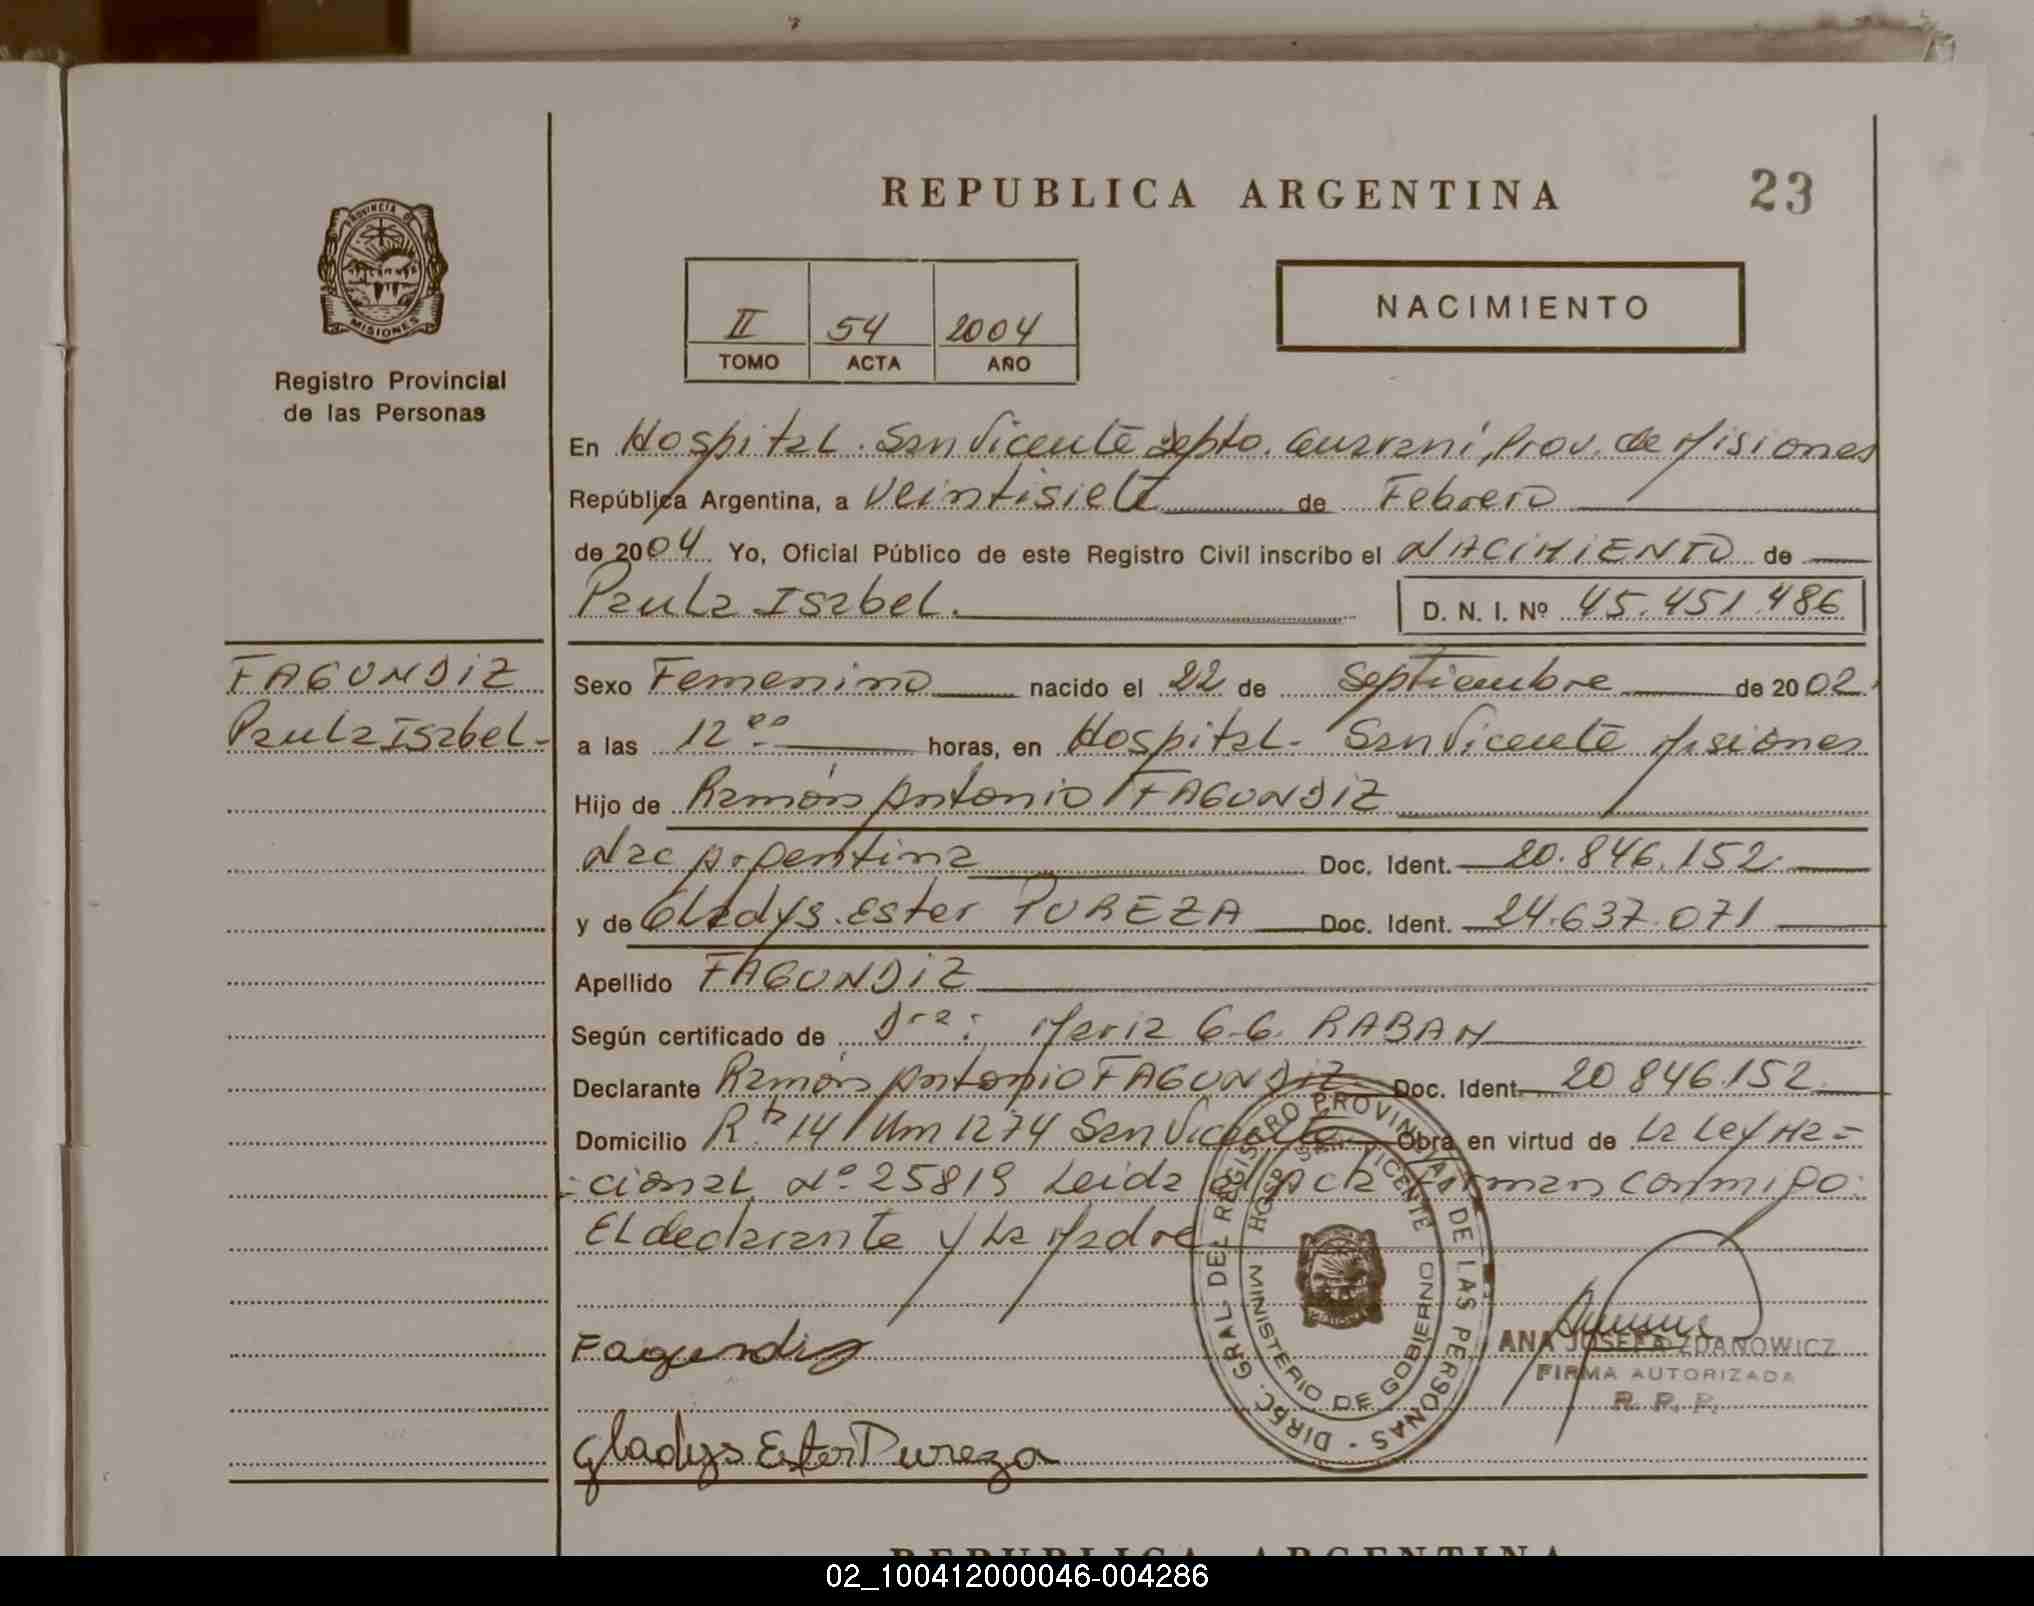 REPUBLICA ARGENTINA
23
PROVINCIA DE
MISIONES
Registro Provincial
de las Personas
II 54 2004
TOMO ACTA AÑO
NACIMIENTO
En Hospital. San Vicente Depto. Guaraní, Prov. de Misiones
República Argentina, a Veintisiete de Febrero
de 2004 Yo, Oficial Público de este Registro Civil inscribo el NACIMIENTO de
Paula Isabel.
D. N. I. Nº 45.451.486
FAGUNDIZ
Paula Isabel-
Sexo Femenino nacido el 22 de Septiembre de 2002.
a las 12 00 horas, en Hospital- San Vicente Misiones
Hijo de Ramón Antonio FAGUNDIZ
Nac Argentina Doc. Ident. 20.846.152
y de Gladys Ester PUREZA Doc. Ident. 24.637.071
Apellido FAGUNDIZ
Según certificado de Dra: Maria G.G. RABAN
Declarante Ramón Antonio FAGUNDIZ Doc. Ident. 20.846.152
Domicilio Rta 14 Km 1274 San Vicente Obra en virtud de La Ley Na=
=cional Nº 25819 Leida el Acta Firman conmigo:
El declarante y La Madre
DIREC. GRAL DEL REGISTRO PROVINCIAL DE LAS PERSONAS
HOSP. SAN VICENTE
MINISTERIO DE GOBIERNO
Fagundiz
ANA JOSEFA ZDANOWICZ
FIRMA AUTORIZADA
R. P. P.
Gladys Ester Pureza
REPUBLICA ARGENTINA
02_100412000046-004286